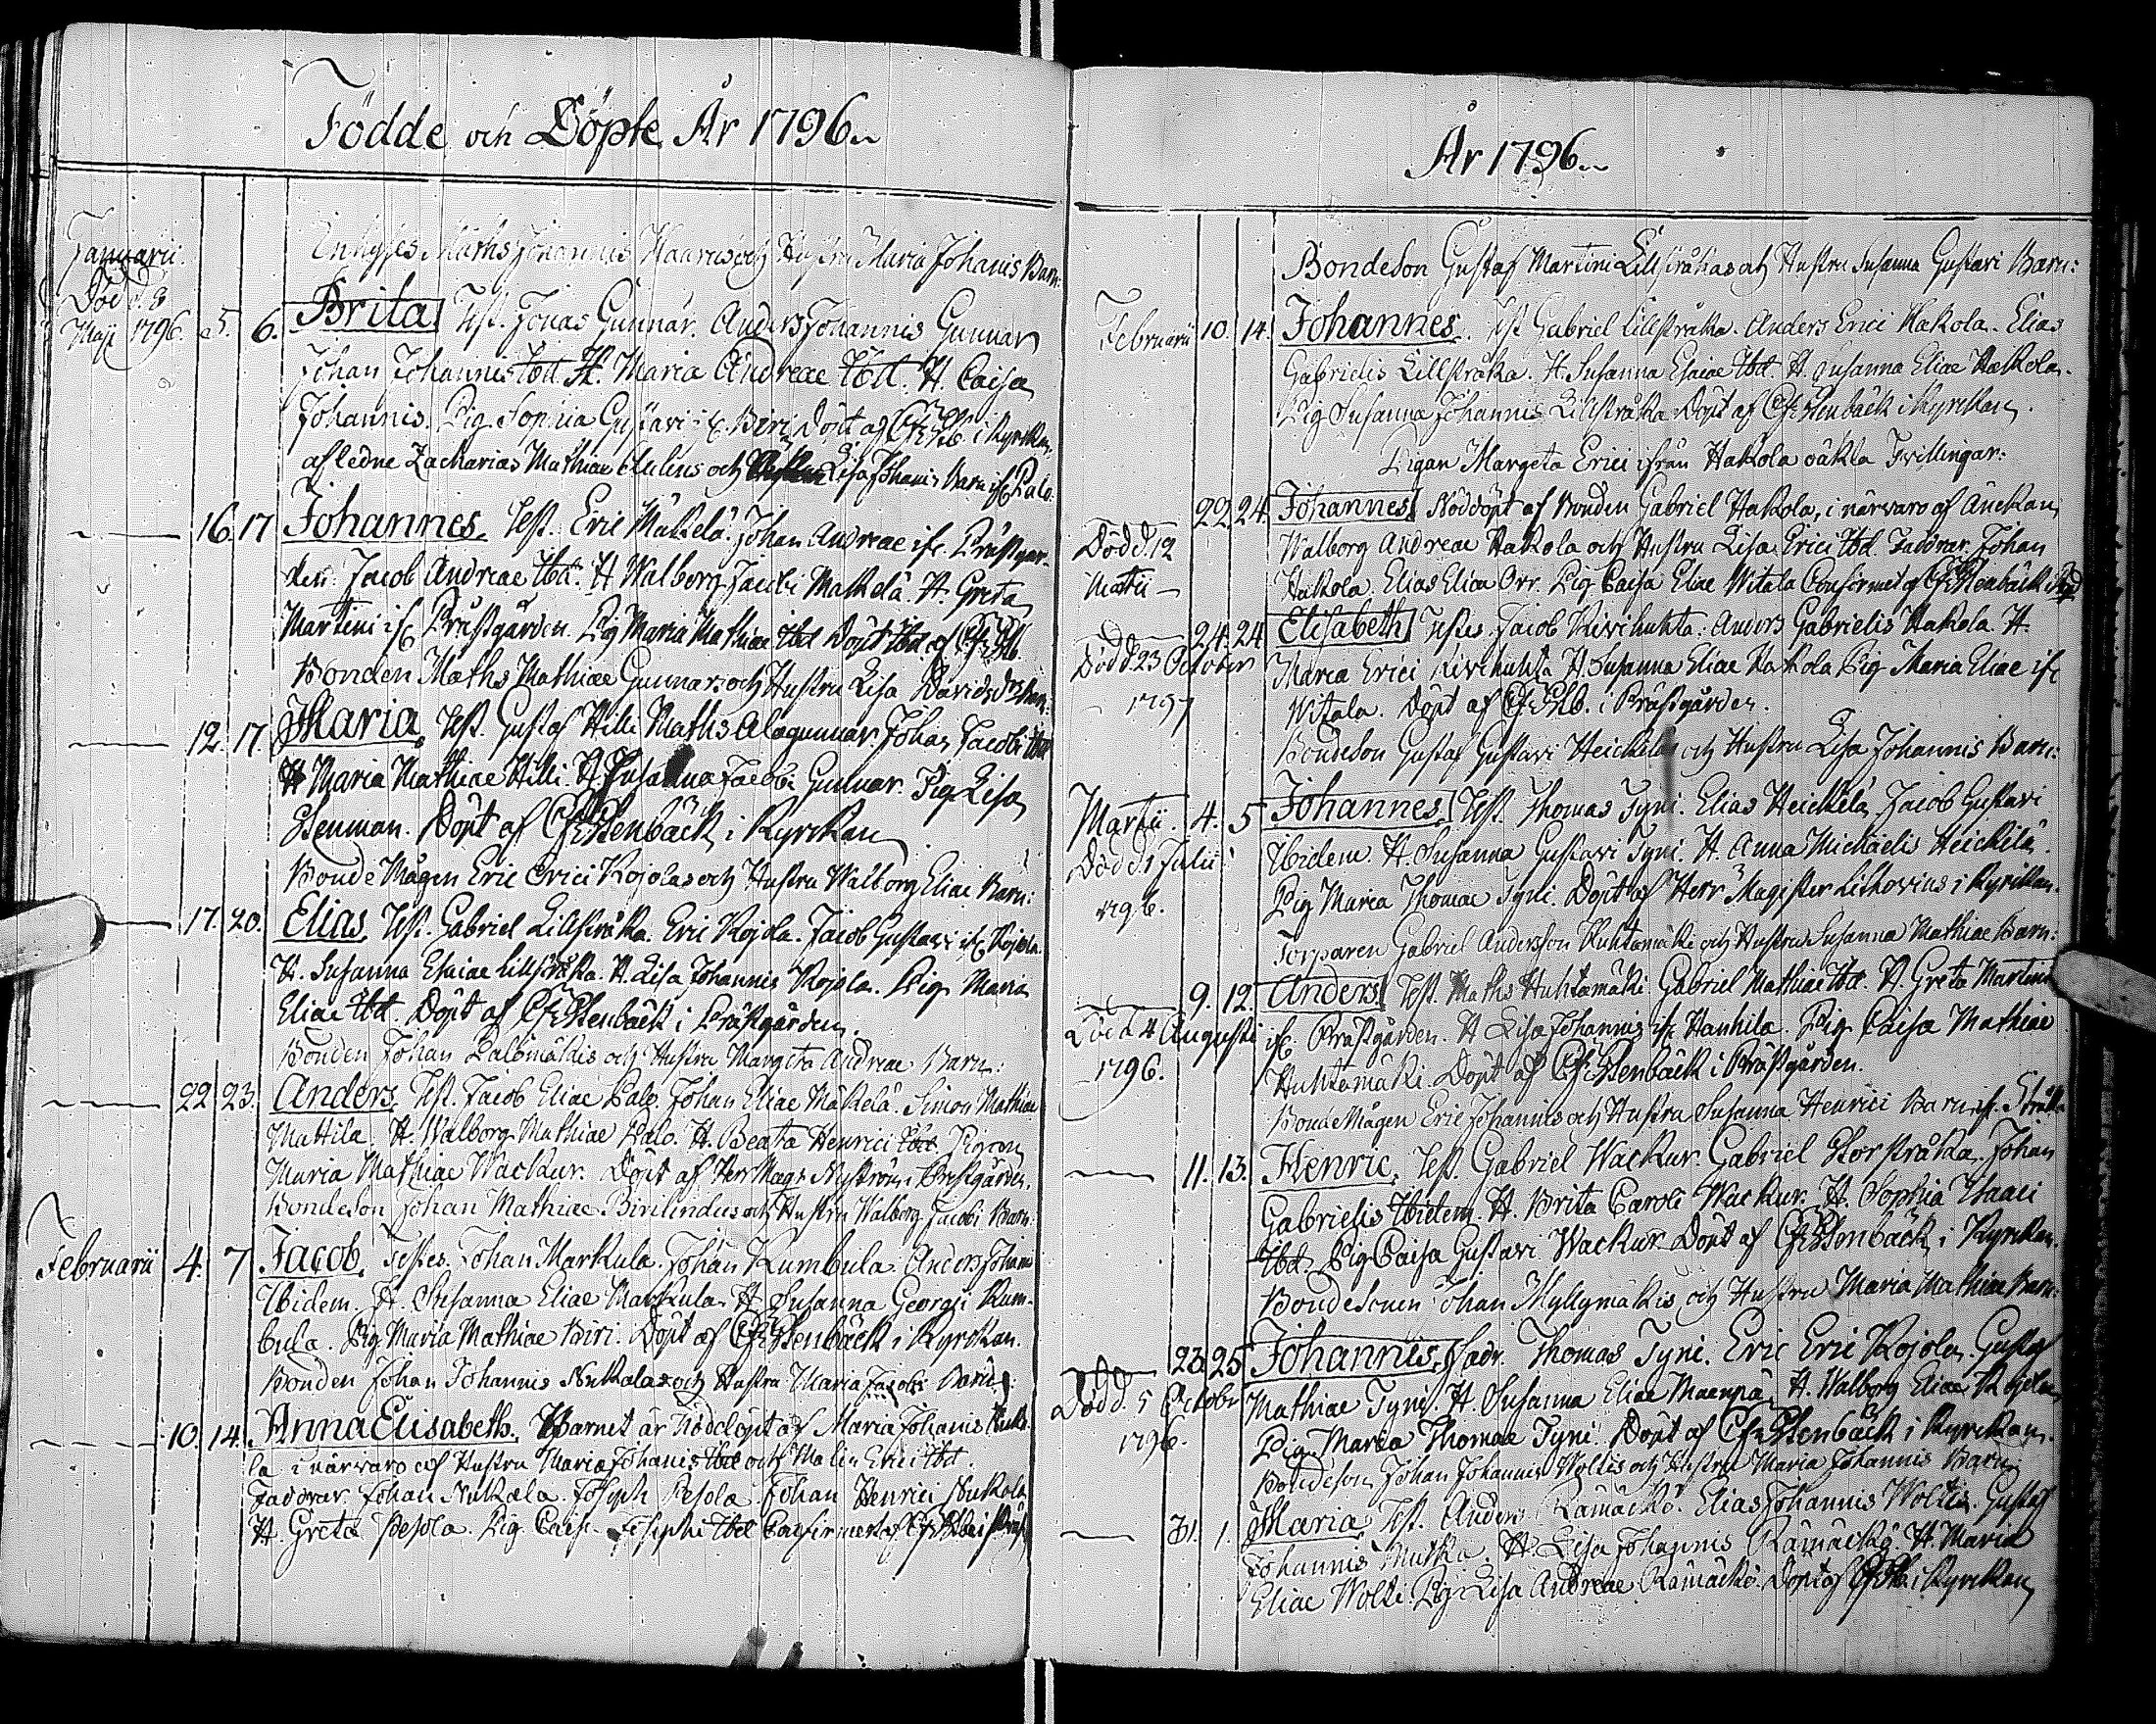 Födde och Döpte År 1796
Januarii. Inhyses Maths Johannis Haarus och Hustru Maria Johanis Barn:
Död d. 8 Maji 1796. 5. 6. Brita Test. Jonas Gunnar. Anders Johannis Gunnar
Johan Johannis Ibd. H. Maria Andreae Ibd. H. Caisa
Johannis. Pig. Sophia Gustavi if. Biri. Döpt af CFStb i Kyrckan.
afledne Zacharias Mathiae och Lisa Johanis Barn if. Palo.
16. 17 Johannes. Test. Eric Mäkelä. Johan Andreae if. Prästgår-
den. Jacob Andreae Ibd. H Walborg Jacobi Mäkelä. H. Greta
Martini if Prästgården. Pig Maria Mathiae Ibd Döpt Ibd. af CFStb.
Bonden Maths Mathiae Gunnars och Hustru Lisa Davidsdr Barn:
12. 17. Maria. Test. Gustaf Hilli Maths Alagunnar Johan Jacobi Ibd
H Maria Mathiae Hilli. H Susanna Jacobi Gunnar. Pig Lisa
Stenman. Döpt af CFStenbäck i Kyrckan
Bonde Mågen Eric Erici Kojolas och Hustru Walborg Eliae Barn:
17. 20. Elias. Test. Gabriel Lillstråka. Eric Kojola. Jacob Gustavi if. Kojola.
H. Susanna Esaiae Lillstråka. H. Lisa Johannis Kojola. Pig Maria
Eliae Ibd. Döpt af CFStenbäck i Prästgården.
Bonden Johan Palomäkis och Hustru Margeta Andreae Barn:
22 23. Anders. Test. Jacob Eliae Palo. Johan Eliae Mäkelä. Simon Mathiae
Mattila. H. Walborg Mathiae Palo. H. Beata Henrici Ibd. Pigan
Maria Mathiae Wackur. Döpt af Herr Mag. Nyström i Prästgården.
Bondeson Johan Mathiae Birilindus och Hustru Walborg Jacobi Barn:
Februarii 4. 7 Jacob. Testes. Johan Markula. Johan Kumbula. Anders Johan
Ibidem. H. Susanna Eliae Markula. H Susanna Georgii Kum-
bula. Pig Maria Mathiae Biri. Döpt af CFStenbäck i Kyrckan.
Bonden Johan Johannis Nukalas och Hustru Maria Jacobi Barn:
10. 14. Anna Elisabeth. Barnet är nöddöpt af Maria Johanis Nuka-
la i närvaro af Hustru Maria Johanis Ibd och Malin Erici Ibd.
Faddrar Johan Nukala. Joseph Pesola. Johan Henrici Nukola
H. Greta Pesola. Pig. Caisa Josephi Ibd Confirmet af CFStb i Präst
År 1796
Bondeson Gustaf Martini Lillstråkas och Hustru Susanna Gustavi Barn:
Februarii 10. 14. Johannes. Test Gabriel Lillstråka. Anders Erici Hakola. Elias
Gabrielis Lillstråka. H. Susanna Esaiae Ibd. H. Susanna Eliae Hakola.
Pig Susanna Johannis Lillstråka Döpt af CFStenbäck i Kyrckan.
Pigan Margeta Erici ifrån Hakola oäkta Tvillingar:
22. 24. Johannes Nöddöpt af Bonden Gabriel Hakola, i närvaro af Änckan
Död d. 12 Walborg Andreae Hakola och Hustru Lisa Erici Ibd. Faddrar. Johan
Martii Hakola. Elias Eliae Orr. Pig Caisa Eliae Witala Confirmet af CFStenbäck
24. 24 Elisabeth Testes. Jacob Kivihuhta. Anders Gabrielis Hakola. H.
Död d. 23 October Maria Erici Kivihuhta H Susanna Eliae Hakola Pig Maria Eliae if
1797 Witala. Döpt af CFStb. i Prästgården.
Bondeson Gustaf Gustavi Heickilas och Hustru Lisa Johannis Barn:
Martii. 4. 5 Johannes. Test. Thomas Tyni. Elias Heickilä. Jacob Gustavi
Död d. 1 Julii Ibidem. H. Susanna Gustavi Tyni. H. Anna Michaelis Heickilä.
1796. Pig Maria Thomae Tyni. Döpt af Herr Magister Lithovius i Kyrckan.
Torparen Gabriel Andersson Huhtamäki och Hustru Susanna Mathiae Barn:
9. 12. Anders Test. Maths Huhtamäki Gabriel Mathiae Ibd. H. Greta Martini
Död d. 4 Augusti if. Prästgården. H Lisa Johannis if Hanhila. Pig Caisa Mathiae
1796. Huhtamäki. Döpt af CFStenbäck i Prästgården.
Bonde Mågen Eric Johannis och Hustru Susanna Henrici Barn if. Stråka
11. 13. Henric. Test. Gabriel Wackur. Gabriel Storstråka. Johan
Gabrielis Ibidem. H. Brita Caroli Wackur. H. Sophia Isaaci
Ibd. Pig Caisa Gustavi Wackur Döpt af CFStenbäck i Kyrckan.
Bondesonen Johan Myllymäkis och Hustru Maria Mathiae Barn:
23. 25 Johannes. Fadr. Thomas Tyni. Eric Eric Kojola. Gustaf
Död d. 5 October Mathiae Tyni. H. Susanna Eliae Maenpä. H. Walborg Eliae Kojola
1796. Pig Maria Thomae Tyni. Döpt af CFStenbäck i Kyrckan.
Bondeson Johan Johannis Woltis och Hustru Maria Johannis Barn:
31. 1. Maria. Test. Anders Rämäckö. Elias Johannis Woltis. Gustaf
Johannis Mutka. H. Lisa Johannis Rämäckö. H. Maria
Eliae Wolti. Pig Lisa Andreae Rämäckö. Döpt af CFStb. i Kyrckan